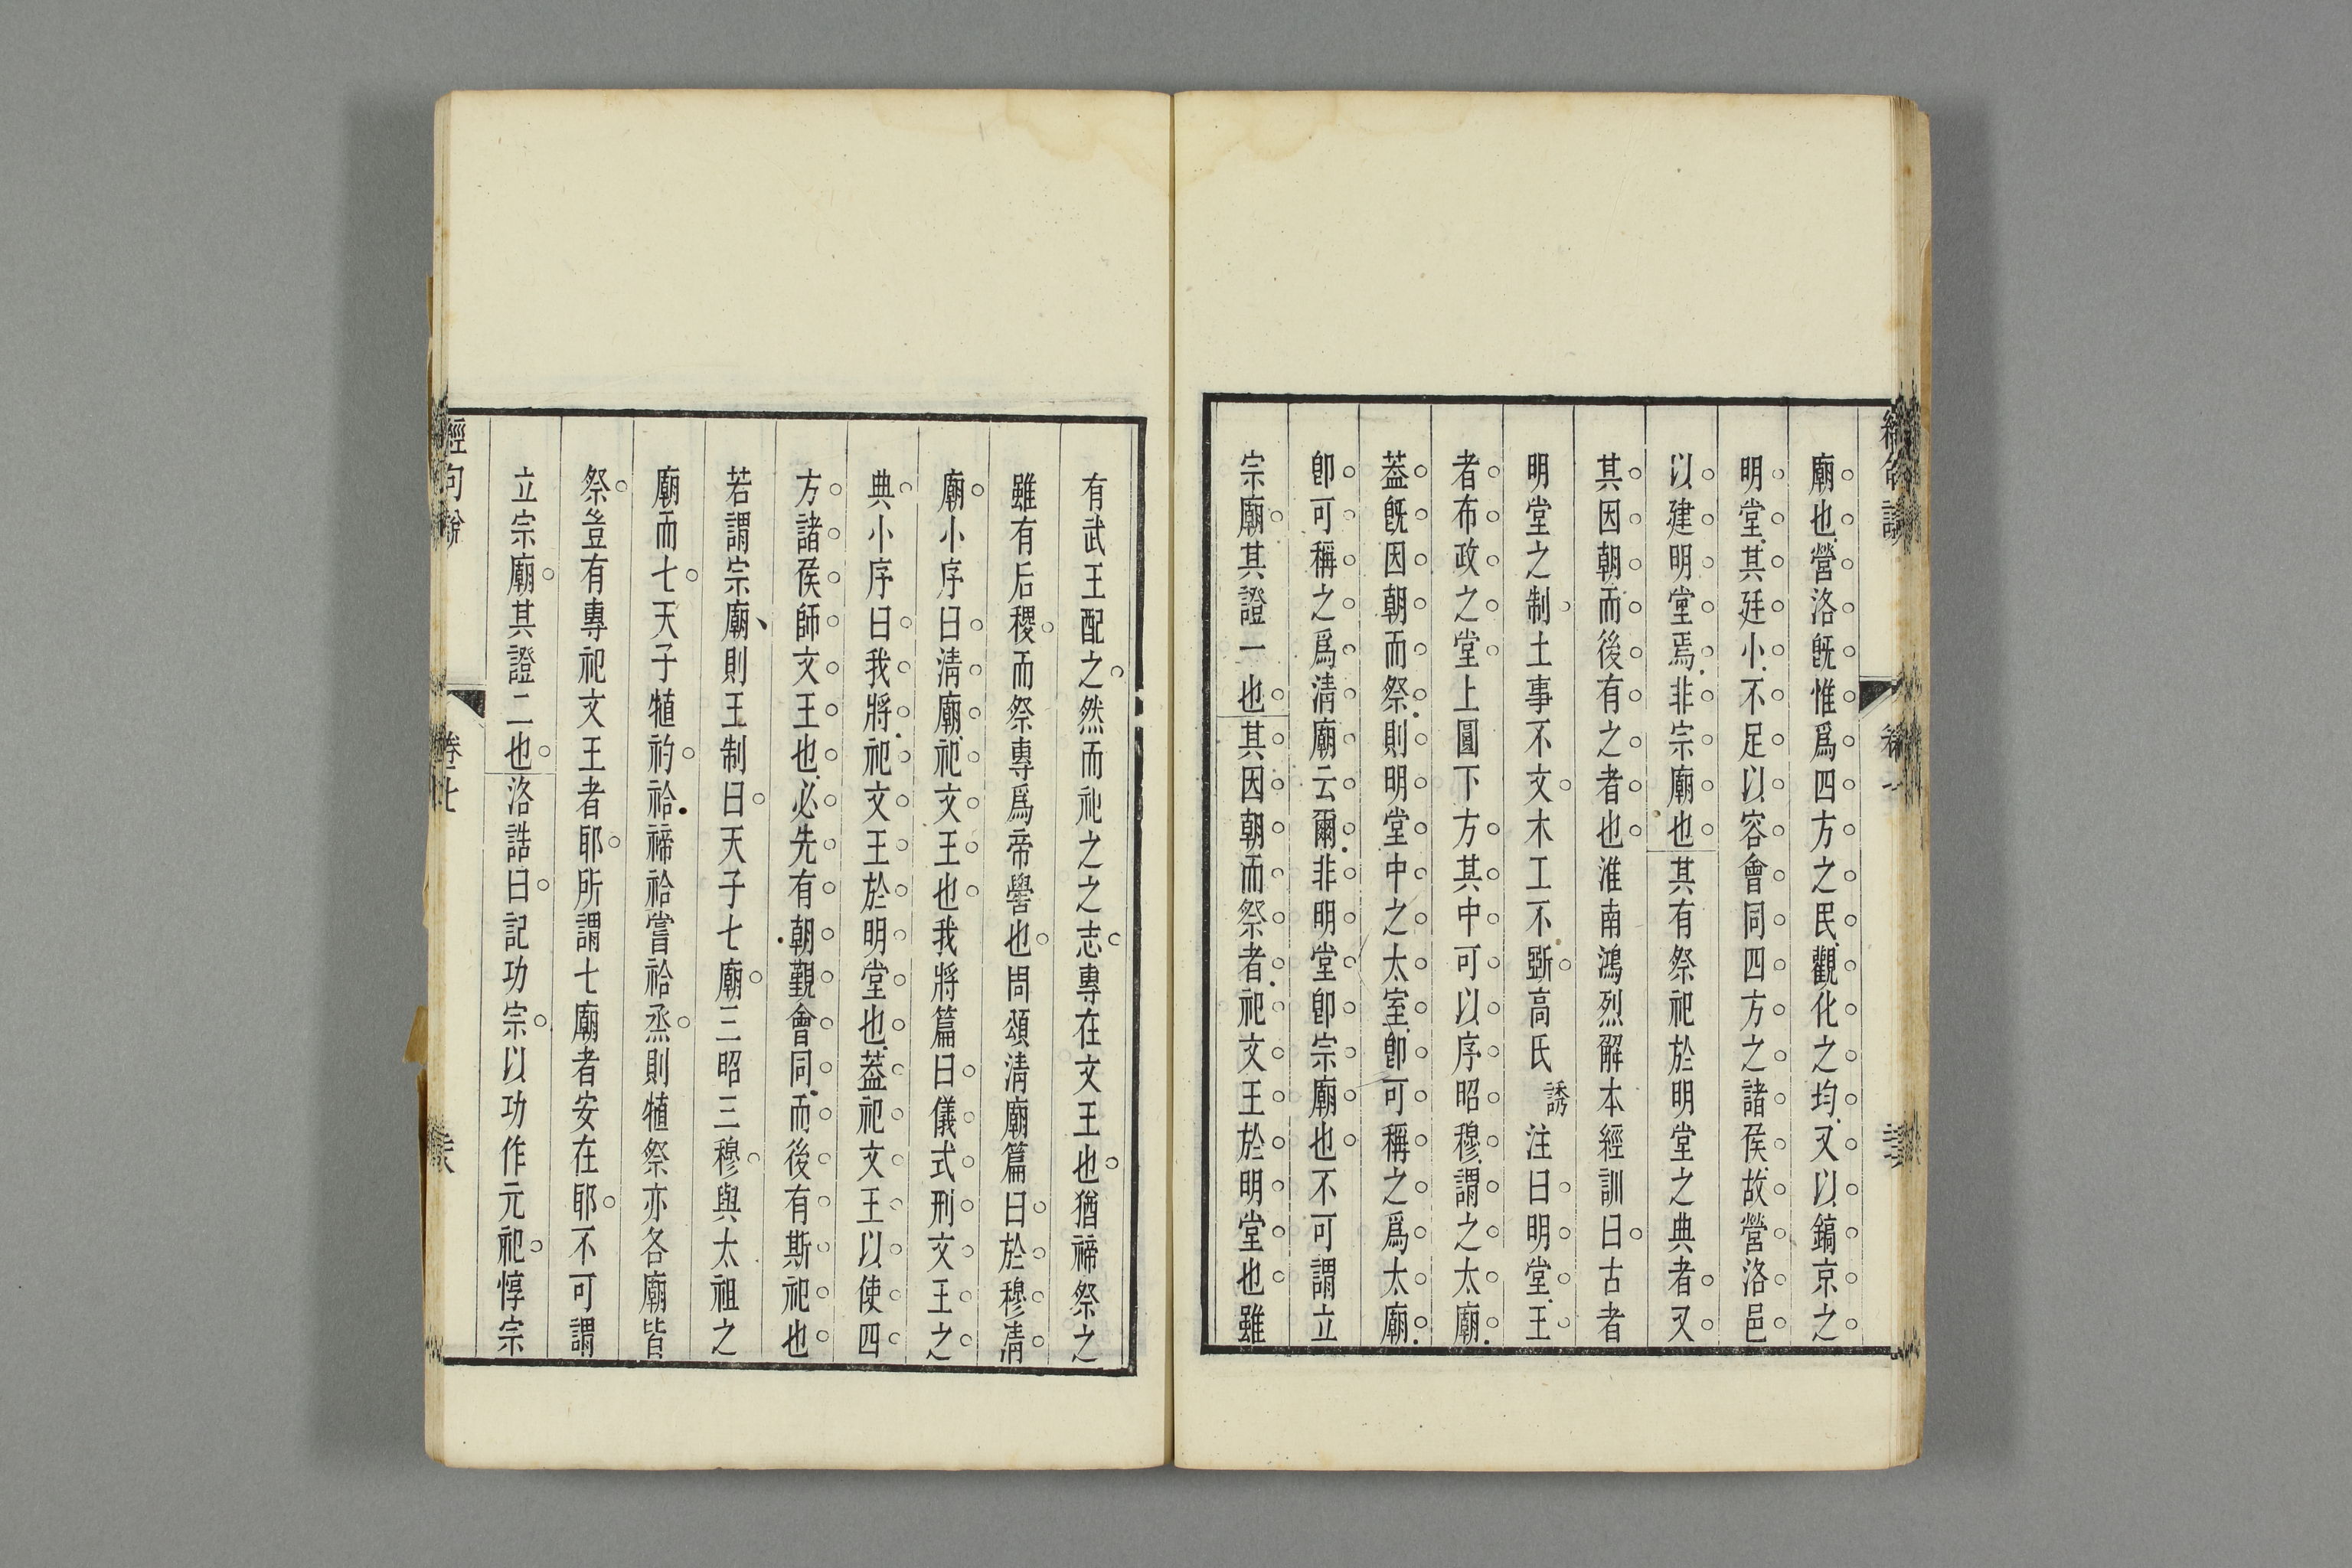 廟也營洛旣惟爲四方之民觀化之均又以鎬京之
明堂其廷小不足以容會同四方之諸侯故營洛邑
以建明堂焉非宗廟也其有祭祀於明堂之典者又
其因朝而後有之者也淮南鴻烈解本經訓曰古者
明堂之制土事不文木工不斲高氏誘注曰明堂王
者布政之堂上圓下方其中可以序昭穆謂之太廟
葢旣因朝而祭則明堂中之太室卽可稱之爲太廟
卽可稱之爲清廟云爾非明堂卽宗廟也不可謂立
宗廟其證一也其因朝而祭者祀文王於明堂也雖
有武王配之然而祀之之志專在文王也猶禘祭之
雖有后稷而祭專爲帝嚳也周頌清廟篇曰於穆清
廟小序曰清廟祀文王也我將篇曰儀式刑文王之
典小序曰我將祀文王於明堂也葢祀文王以使四
方諸侯師文王也必先有朝覲會同而後有斯祀也
若謂宗廟則王制曰天子七廟三昭三穆與太祖之
廟而七天子犆礿祫禘祫嘗祫烝則犆祭亦各廟皆
祭豈有專祀文王者耶所謂七廟者安在耶不可謂
立宗廟其證二也洛誥曰記功宗以功作元祀惇宗
經句說 卷七